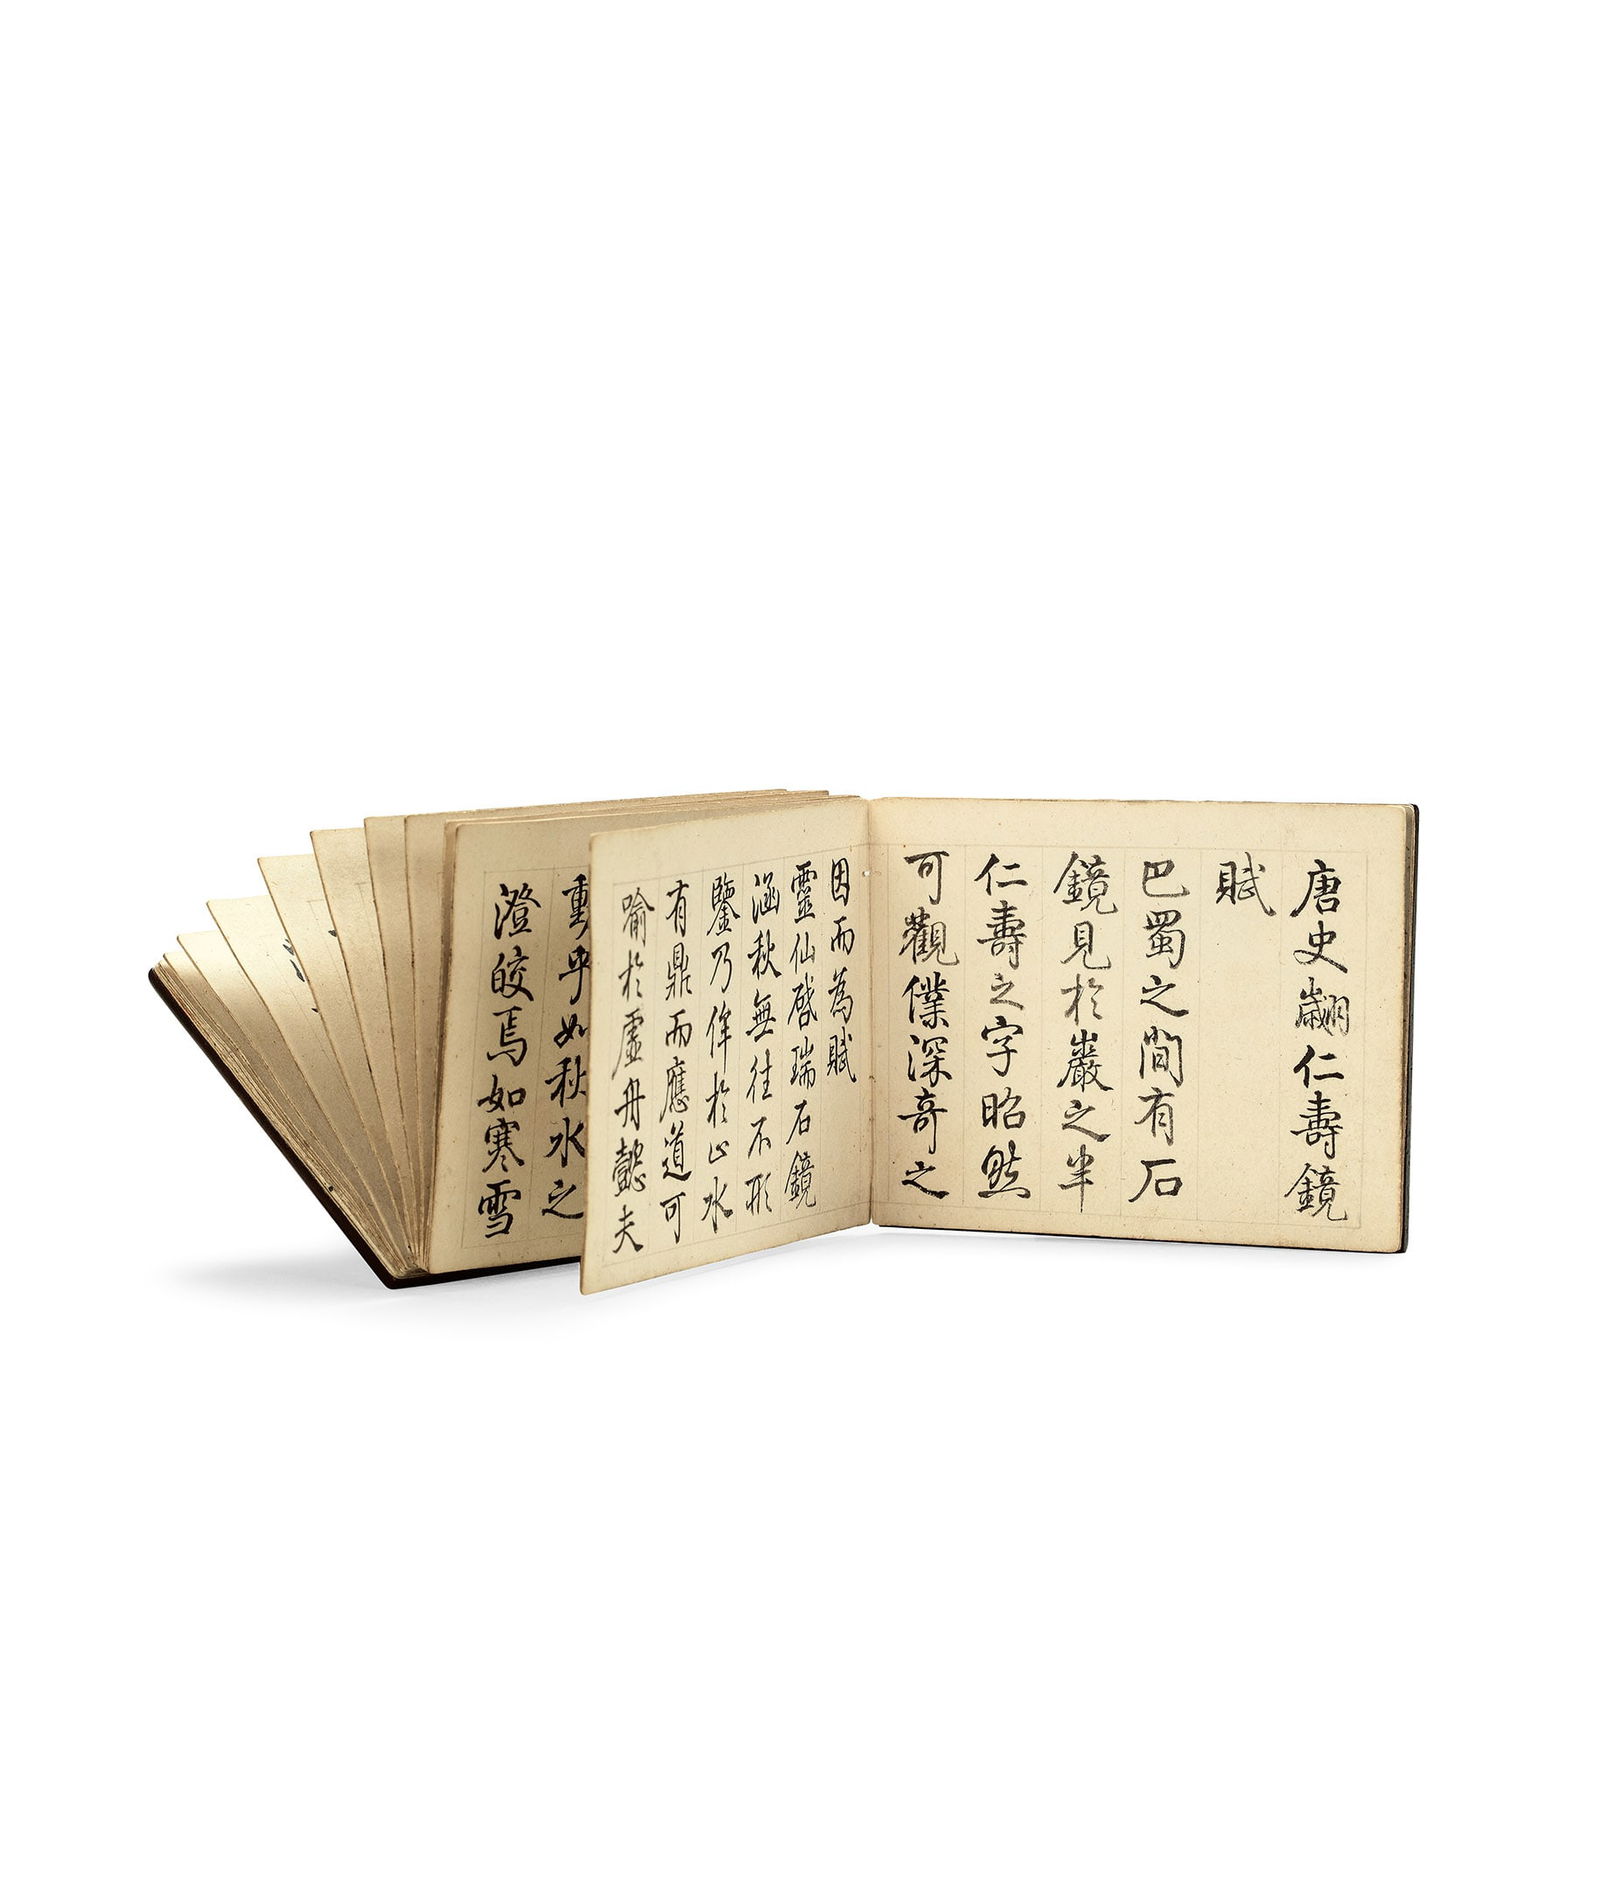 唐史翽仁壽鏡
賦
巴蜀之間有石
鏡見於巖之半
仁壽之字昭然
可觀僕深奇之
因而為賦
靈仙啓瑞石鏡
涵秋無往不形
鑒乃侔於止水
有鼎而應道可
喻於虛舟懿夫
動乎如秋水之
澄皎焉如寒雪